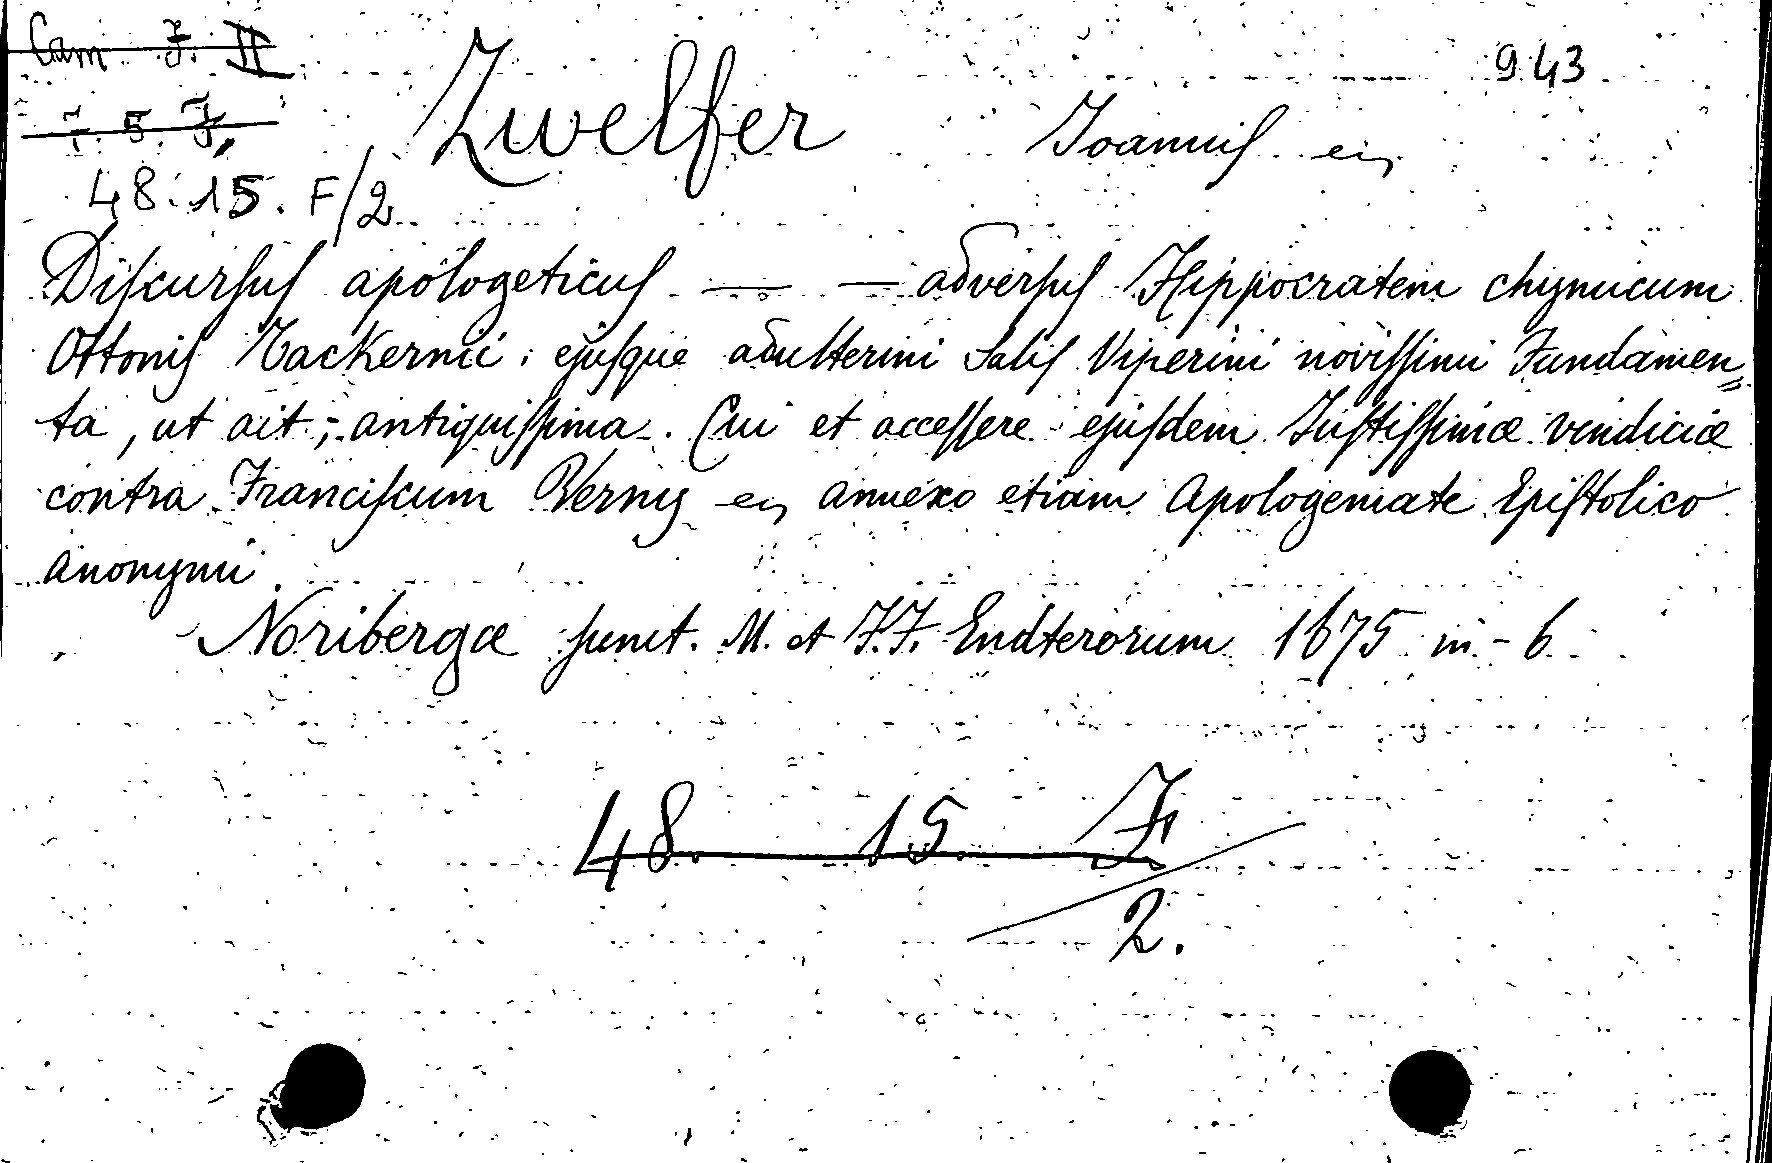 Cam J. II
7. 5. J,
48. 15. F/2
943
Zwelfer Joannis
Diſcurſus apologeticus — — adverſus Hippocratem chymicum
Ottonis Tackernii: ejuſque adulterini Salis Viperini noviſſimi Fundamen„
ta, ut ait, antiquiſſima. Cui et acceſſere ejuſdem Juſtiſſimæ vindiciæ
contra Franciſcum Verny annexo etiam Apologemate Epiſtolico
anonymi.
Noribergæ ſumt. M. et J.F. Endterorum 1675 in-6
48. 15. F
2.